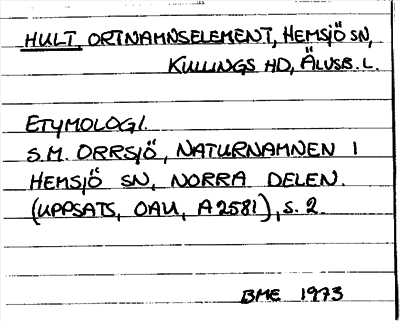 HULT, ORTNAMNSELEMENT, HEMSJÖ SN,
KULLINGS HD, ÄLVSB. L.
ETYMOLOGI.
S.M. ORRSJÖ, NATURNAMNEN I
HEMSJÖ SN, NORRA DELEN.
(UPPSATS, OAU, A2581), S. 2.
BME 1973